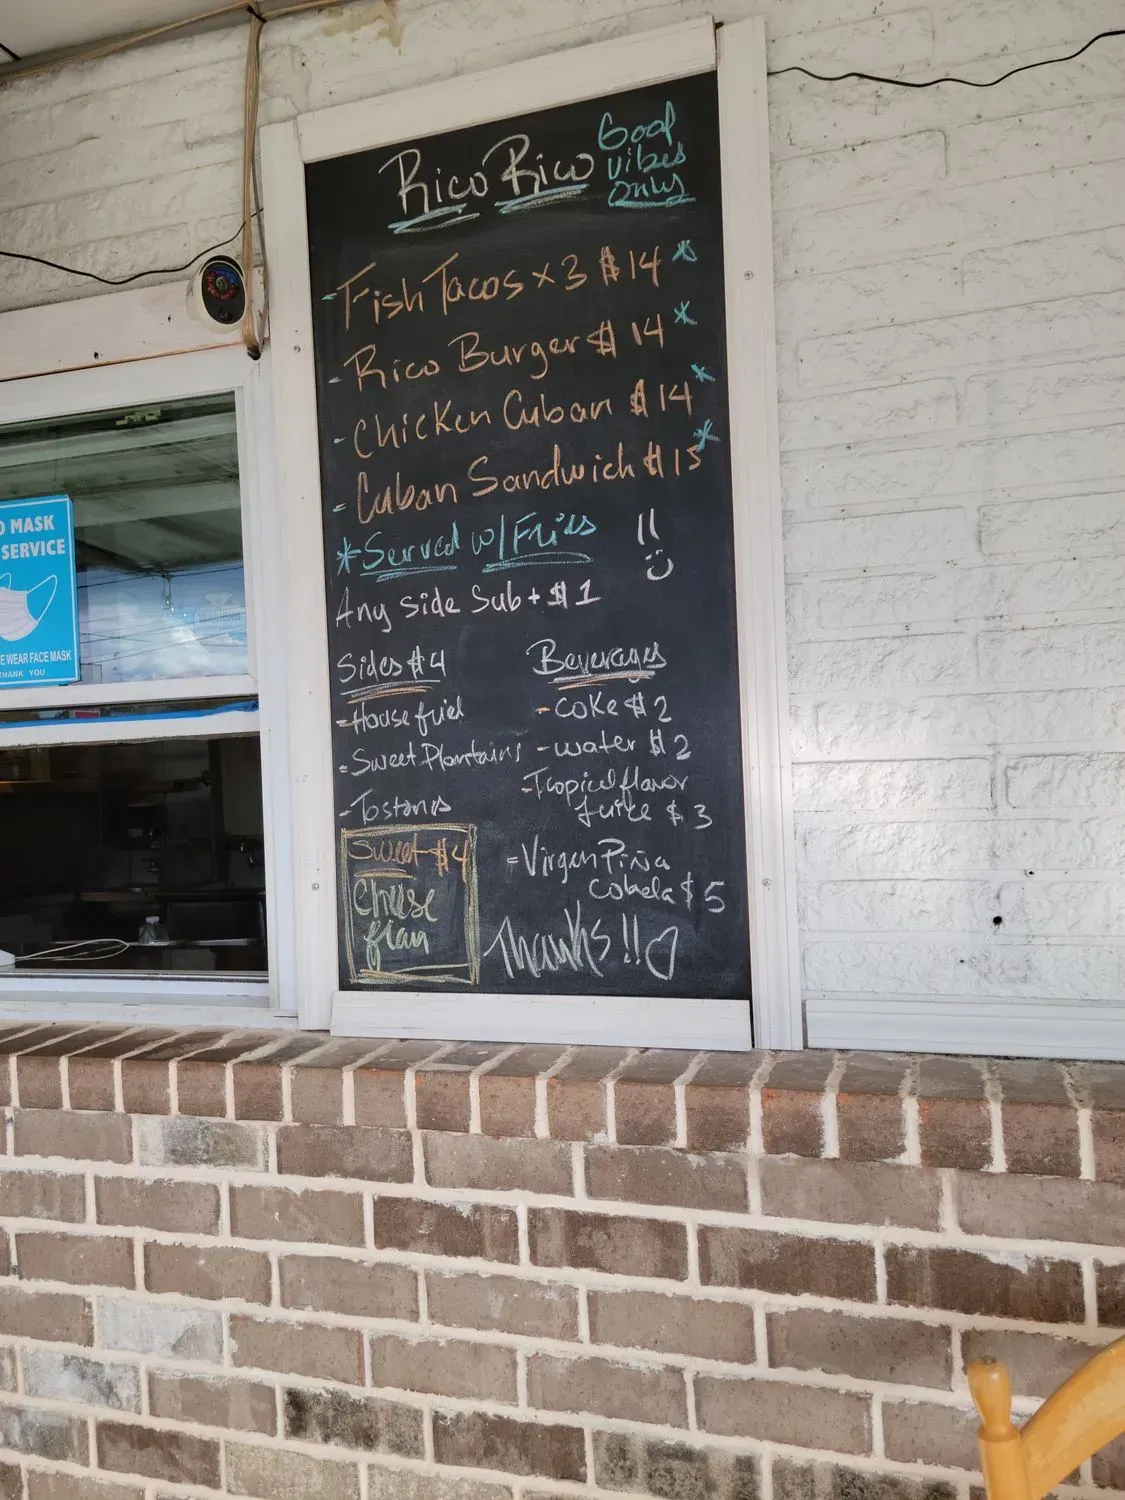 Rico Rico
Good
vibes
Only
- Fish Tacos x 3 $14 *
- Rico Burger $14 *
- Chicken Cuban $14 *
- Cuban Sandwich $15 *
* Served w/ Fries
Any side Sub + $1
Sides $4
- House fried
- Sweet Plantains
- Tostones
Sweet $4
Cheese
flan
Beverages
- Coke $2
- water $2
- Tropical flavor
Juice $3
- Virgen Piña
Colada $5
Thanks!!
MASK
SERVICE
WEAR FACE MASK
THANK YOU